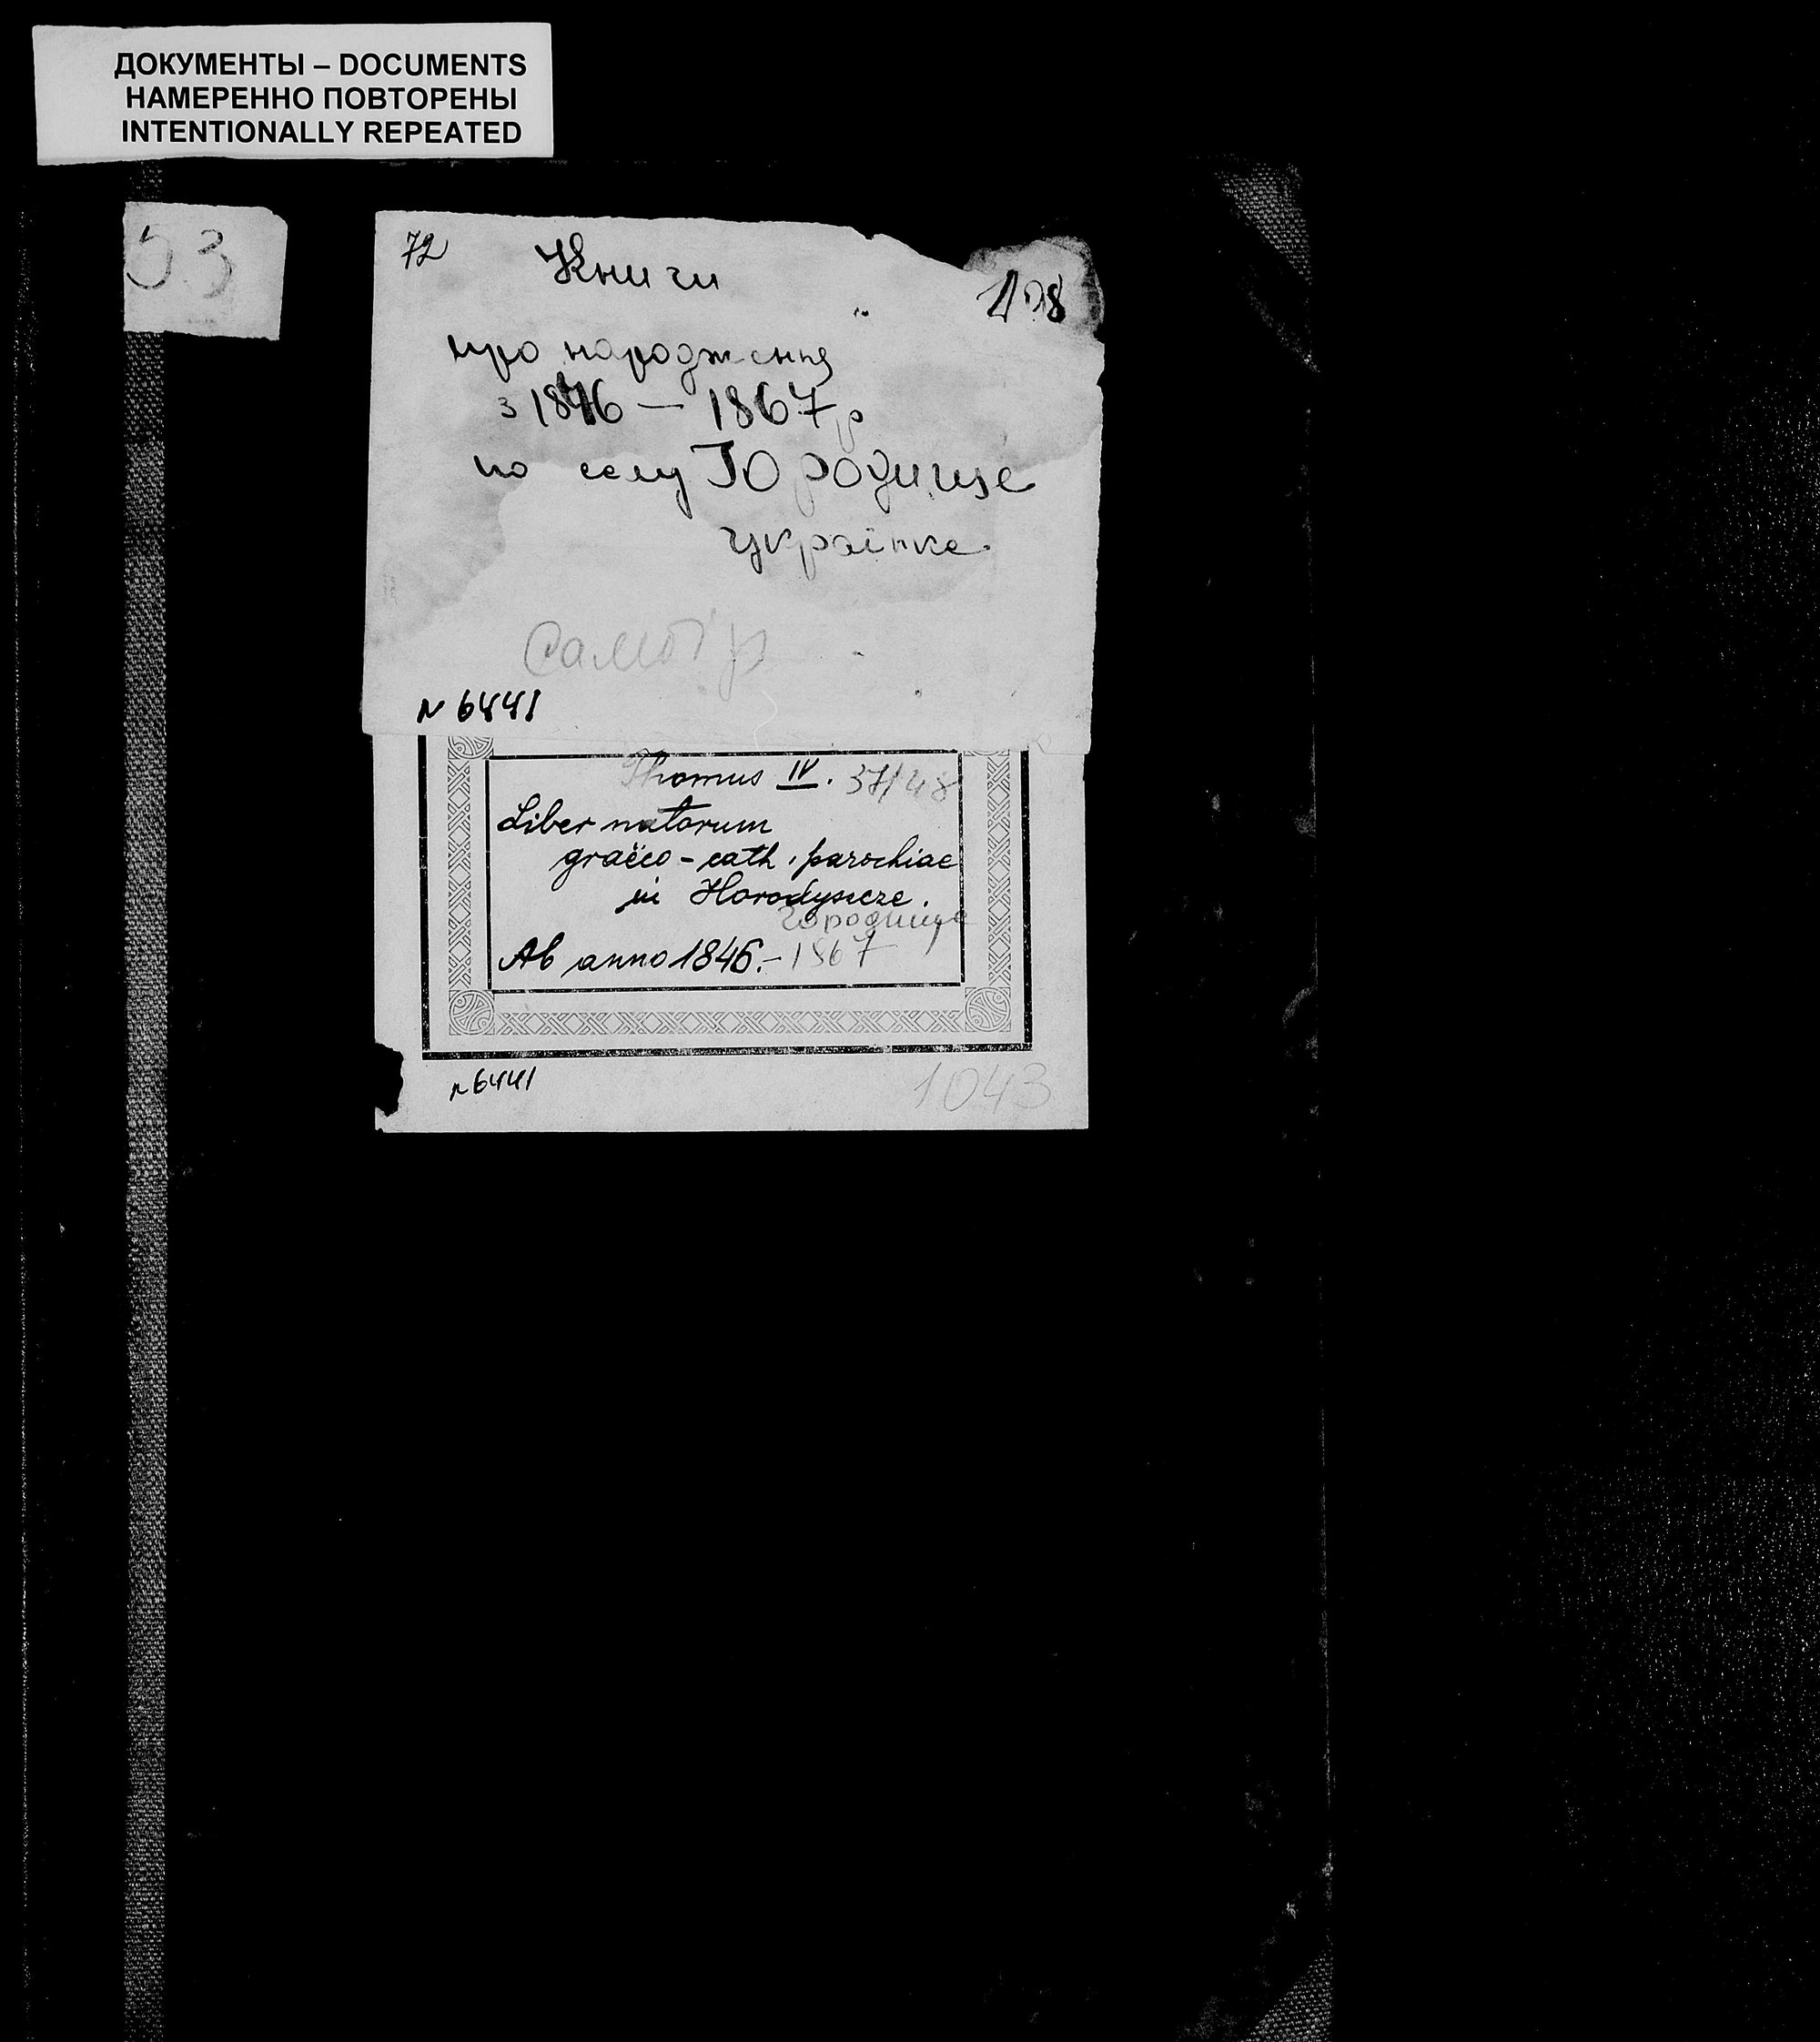 ДОКУМЕНТЫ – DOCUMENTS
НАМЕРЕННО ПОВТОРЕНЫ
INTENTIONALLY REPEATED
53
72
Книги
про народження
з 1846 – 1867 р
по селу Городище
українке
N 6441
Thomus IV. 37/48
Liber natorum
graëco - cath. parochiae
in Horodyszcze.
Городище
Ab anno 1846. – 1867
N 6441
1043